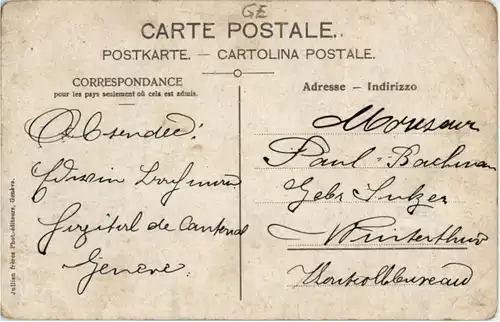 GE
CARTE POSTALE.
POSTKARTE. — CARTOLINA POSTALE.
CORRESPONDANCE
pour les pays seulement où cela est admis.
Adresse — Indirizzo
Absender:
Edwin
de Cantonal
Geneve.
Monsieur
Paul Bachman
Gebr Sulzer
Winterthur
Kontrollbureau
Jullien frères Phot.-éditeurs, Genève.